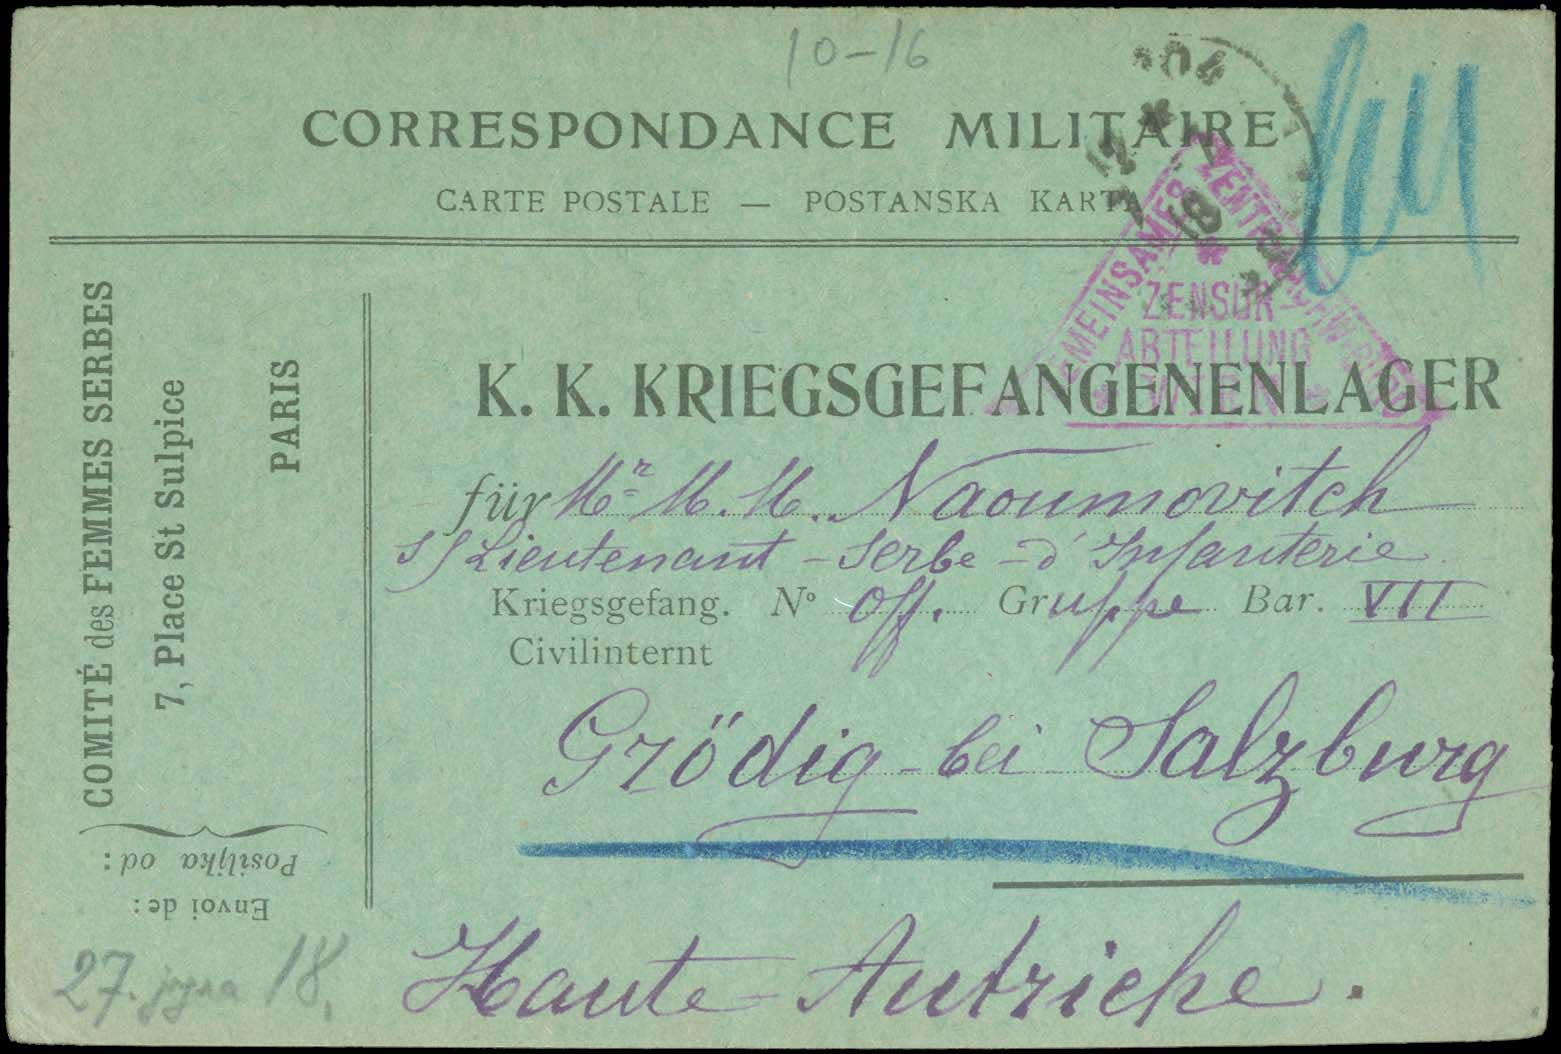 10-16
CORRESPONDANCE MILITAIRE
CARTE POSTALE — POSTANSKA KARTA
GEMEINSAMES ZENTRALNACHW
ZENSUR
ABTEILUNG
WIEN
18
COMITÉ des FEMMES SERBES
7, Place St Sulpice
PARIS
Envoi de:
Posiljka od:
K. K. KRIEGSGEFANGENENLAGER
für Mr M. M. Naoumovitch
s/Lieutenant - Serbe - d'Infanterie
Kriegsgefang. No Off. Gruppe Bar. VII
Civilinternt
Grödig - bei Salzburg
Haute - Autriche.
27. јула 18.